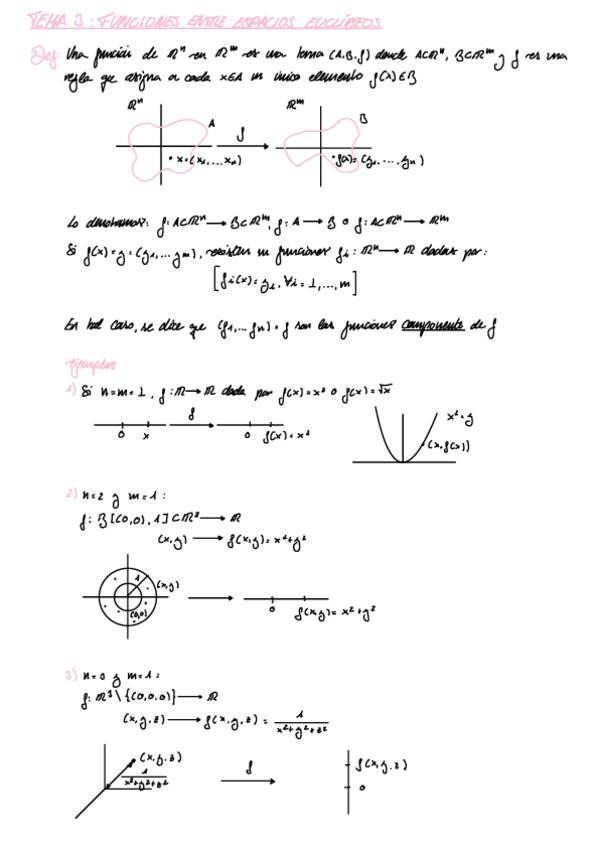 TEMA 3: FUNCIONES ENTRE ESPACIOS EUCLÍDEOS
Def: Una función de ℝⁿ en ℝᵐ es una terna (A,B,f) donde A⊂ℝⁿ, B⊂ℝᵐ y f es una
regla que asigna a cada x∈A un único elemento f(x)∈B
ℝⁿ
ℝᵐ
A
f
B
x=(x₁,...,xₙ)
f(x)=(y₁,...,yₘ)
Lo denotamos: f:A⊂ℝⁿ→B⊂ℝᵐ, f:A→B o f:A⊂ℝⁿ→ℝᵐ
Si f(x)=y=(y₁,...,yₘ), existen m funciones fᵢ:ℝⁿ→ℝ dadas por:
[fᵢ(x)=yᵢ, ∀i=1,...,m]
En tal caso, se dice que (f₁,...fₙ)=f son las funciones componente de f
Ejemplos
1) Si n=m=1, f:ℝ→ℝ dada por f(x)=x² o f(x)=√x
f
0 x
0 f(x)=x²
x²=y
(x,f(x))
2) n=2 y m=1:
f: B[(0,0),1]⊂ℝ²→ℝ
(x,y)→f(x,y)=x²+y²
1
(x,y)
(0,0)
0 f(x,y)=x²+y²
3) n=3 y m=1:
f:ℝ³\{(0,0,0)}→ℝ
(x,y,z)→f(x,y,z)=1/(x²+y²+z²)
(x,y,z)
1/(x²+y²+z²)
f
f(x,y,z)
0